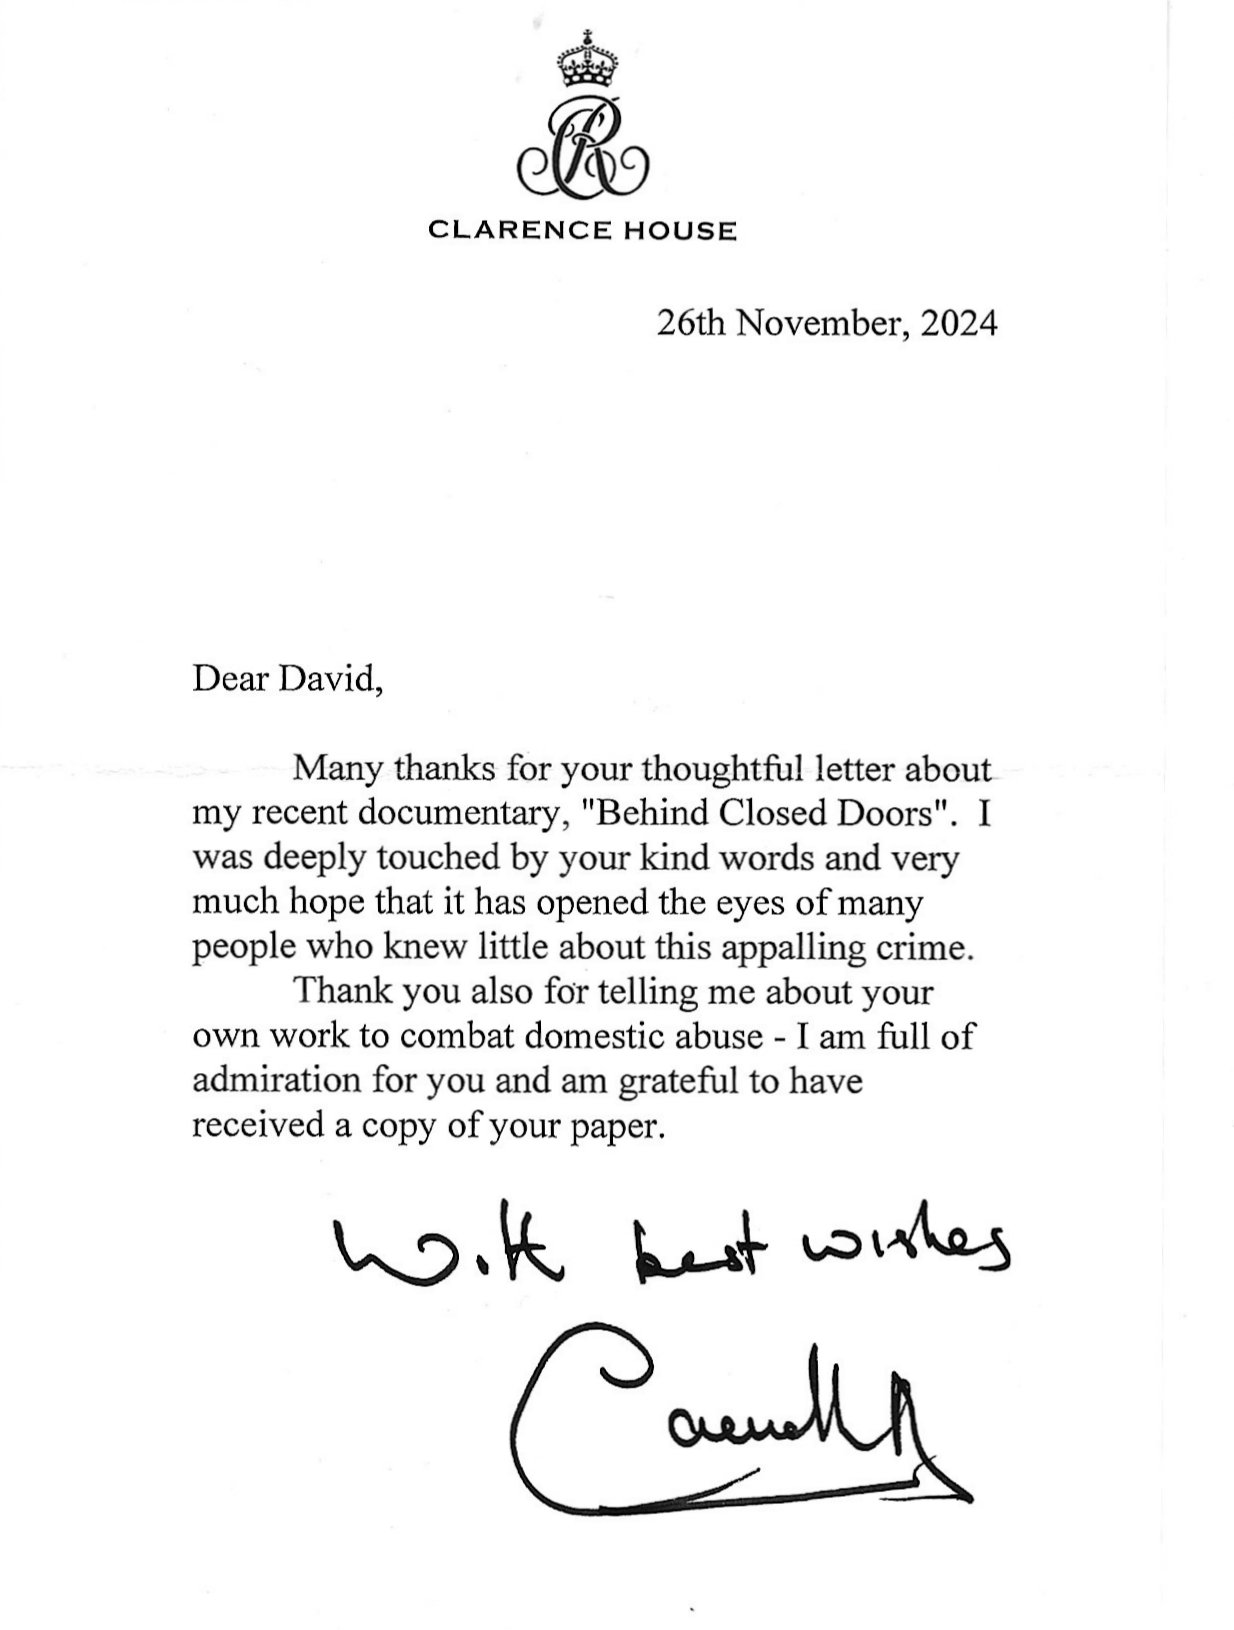 CR
CLARENCE HOUSE
26th November, 2024
Dear David,
Many thanks for your thoughtful letter about
my recent documentary, "Behind Closed Doors".  I
was deeply touched by your kind words and very
much hope that it has opened the eyes of many
people who knew little about this appalling crime.
Thank you also for telling me about your
own work to combat domestic abuse - I am full of
admiration for you and am grateful to have
received a copy of your paper.
With best wishes
Camilla R